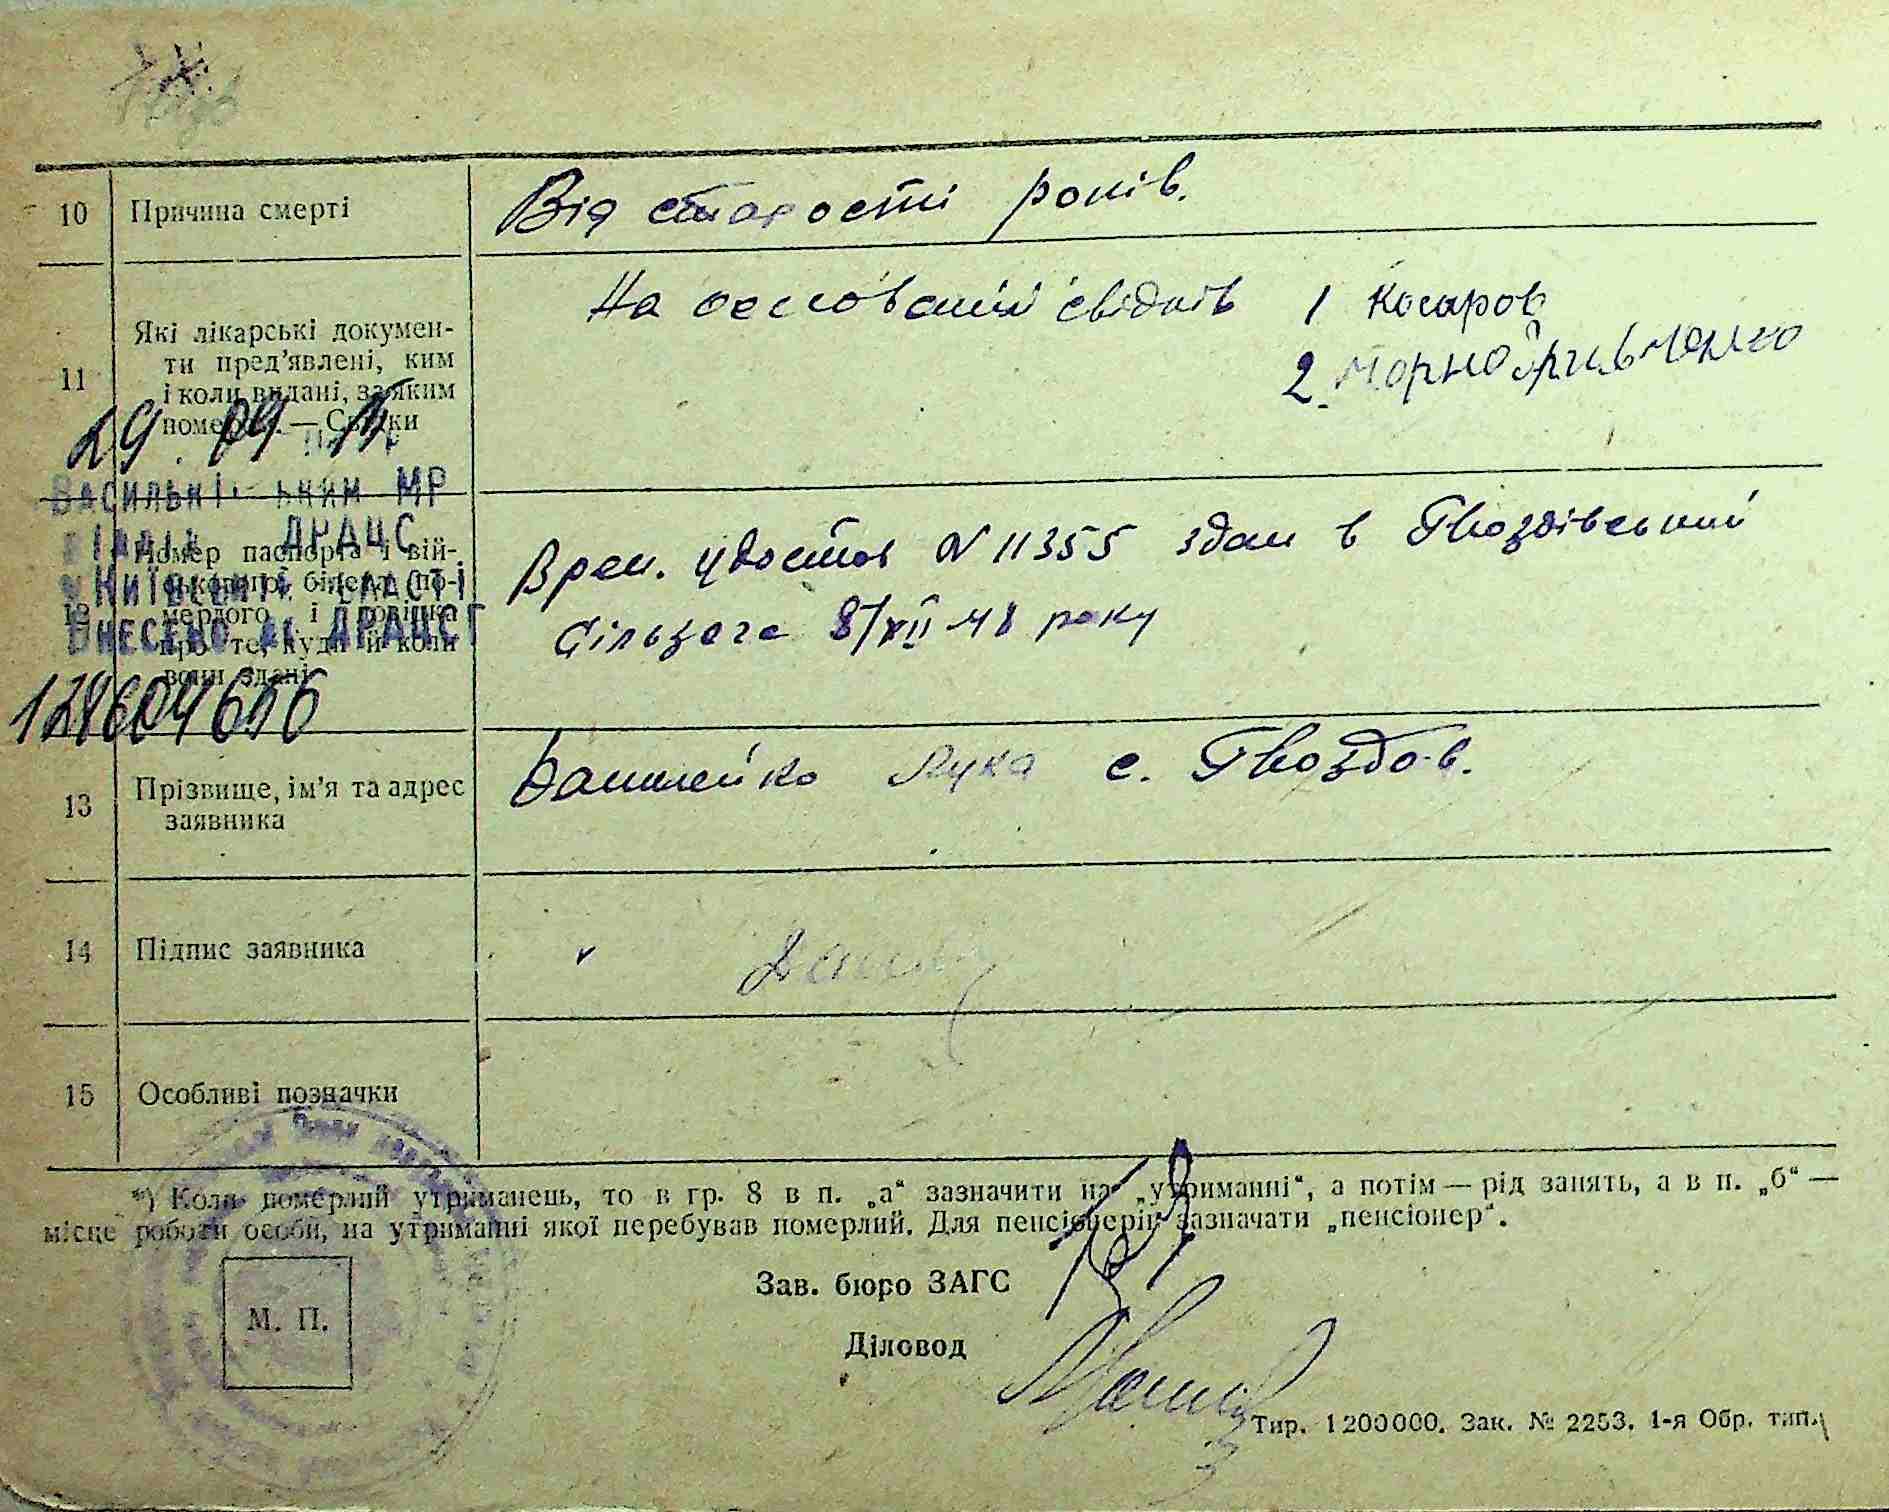 10 Причина смерті
Від старости років.
11 Які лікарські докумен-
ти пред'явлені, ким
і коли видані, за яким
номером. — Справки
На основании свідків 1 Косаров
2.
29.09.
Васильківським МР
ДРАЦС
Київської області
Внесено до ДРАЦСГ
12 Номер паспорта і вій-
ськового білета по-
мерлого і довідка
про те, куди й коли
вони здані
Врем. удостов N 11355 здан в Гвоздівський
сільраду 8/XII 48 року
13 Прізвище, ім'я та адрес
заявника
Лука с. Гвоздов.
14 Підпис заявника
15 Особливі позначки
*) Коли померлий утриманець, то в гр. 8 в п. „а“ зазначити на „утриманні“, а потім — рід занять, а в п. „б“ —
місце роботи особи, на утриманні якої перебував померлий. Для пенсіонерів зазначати „пенсіонер“.
Зав. бюро ЗАГС
М. П.
Діловод
Тир. 1200000. Зак. № 2253. 1-я Обр. тип.